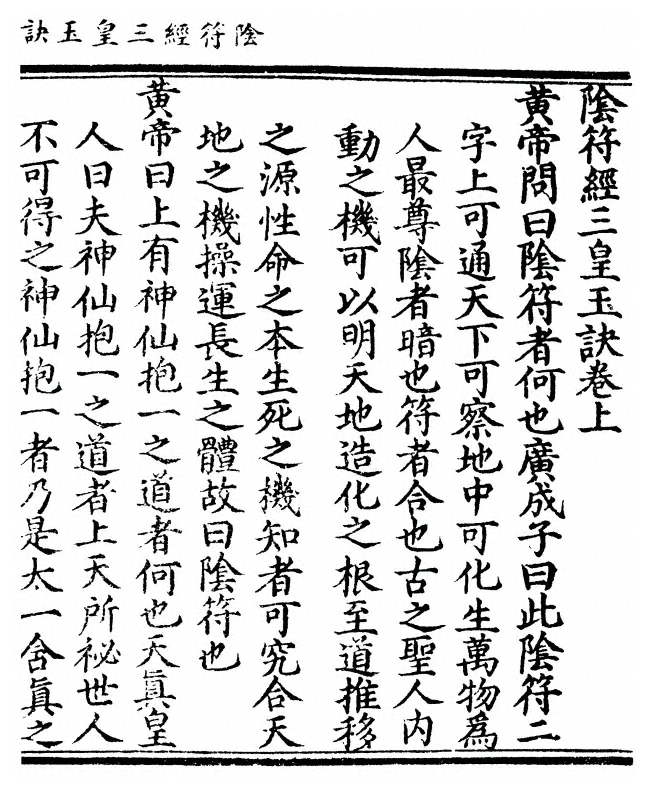 陰符經三皇玉訣
陰符經三皇玉訣卷上
黃帝問曰陰符者何也廣成子曰此陰符二
字上可通天下可察地中可化生萬物爲
人最尊陰者暗也符者合也古之聖人内
動之機可以明天地造化之根至道推移
之源性命之本生死之機知者可究合天
地之機操運長生之體故曰陰符也
黃帝曰上有神仙抱一之道者何也天眞皇
人曰夫神仙抱一之道者上天所祕世人
不可得之神仙抱一者乃是太一含眞之